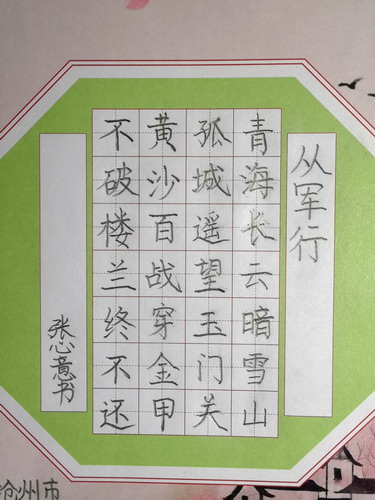 从军行
青海长云暗雪山
孤城遥望玉门关
黄沙百战穿金甲
不破楼兰终不还
张心意书
沧州市